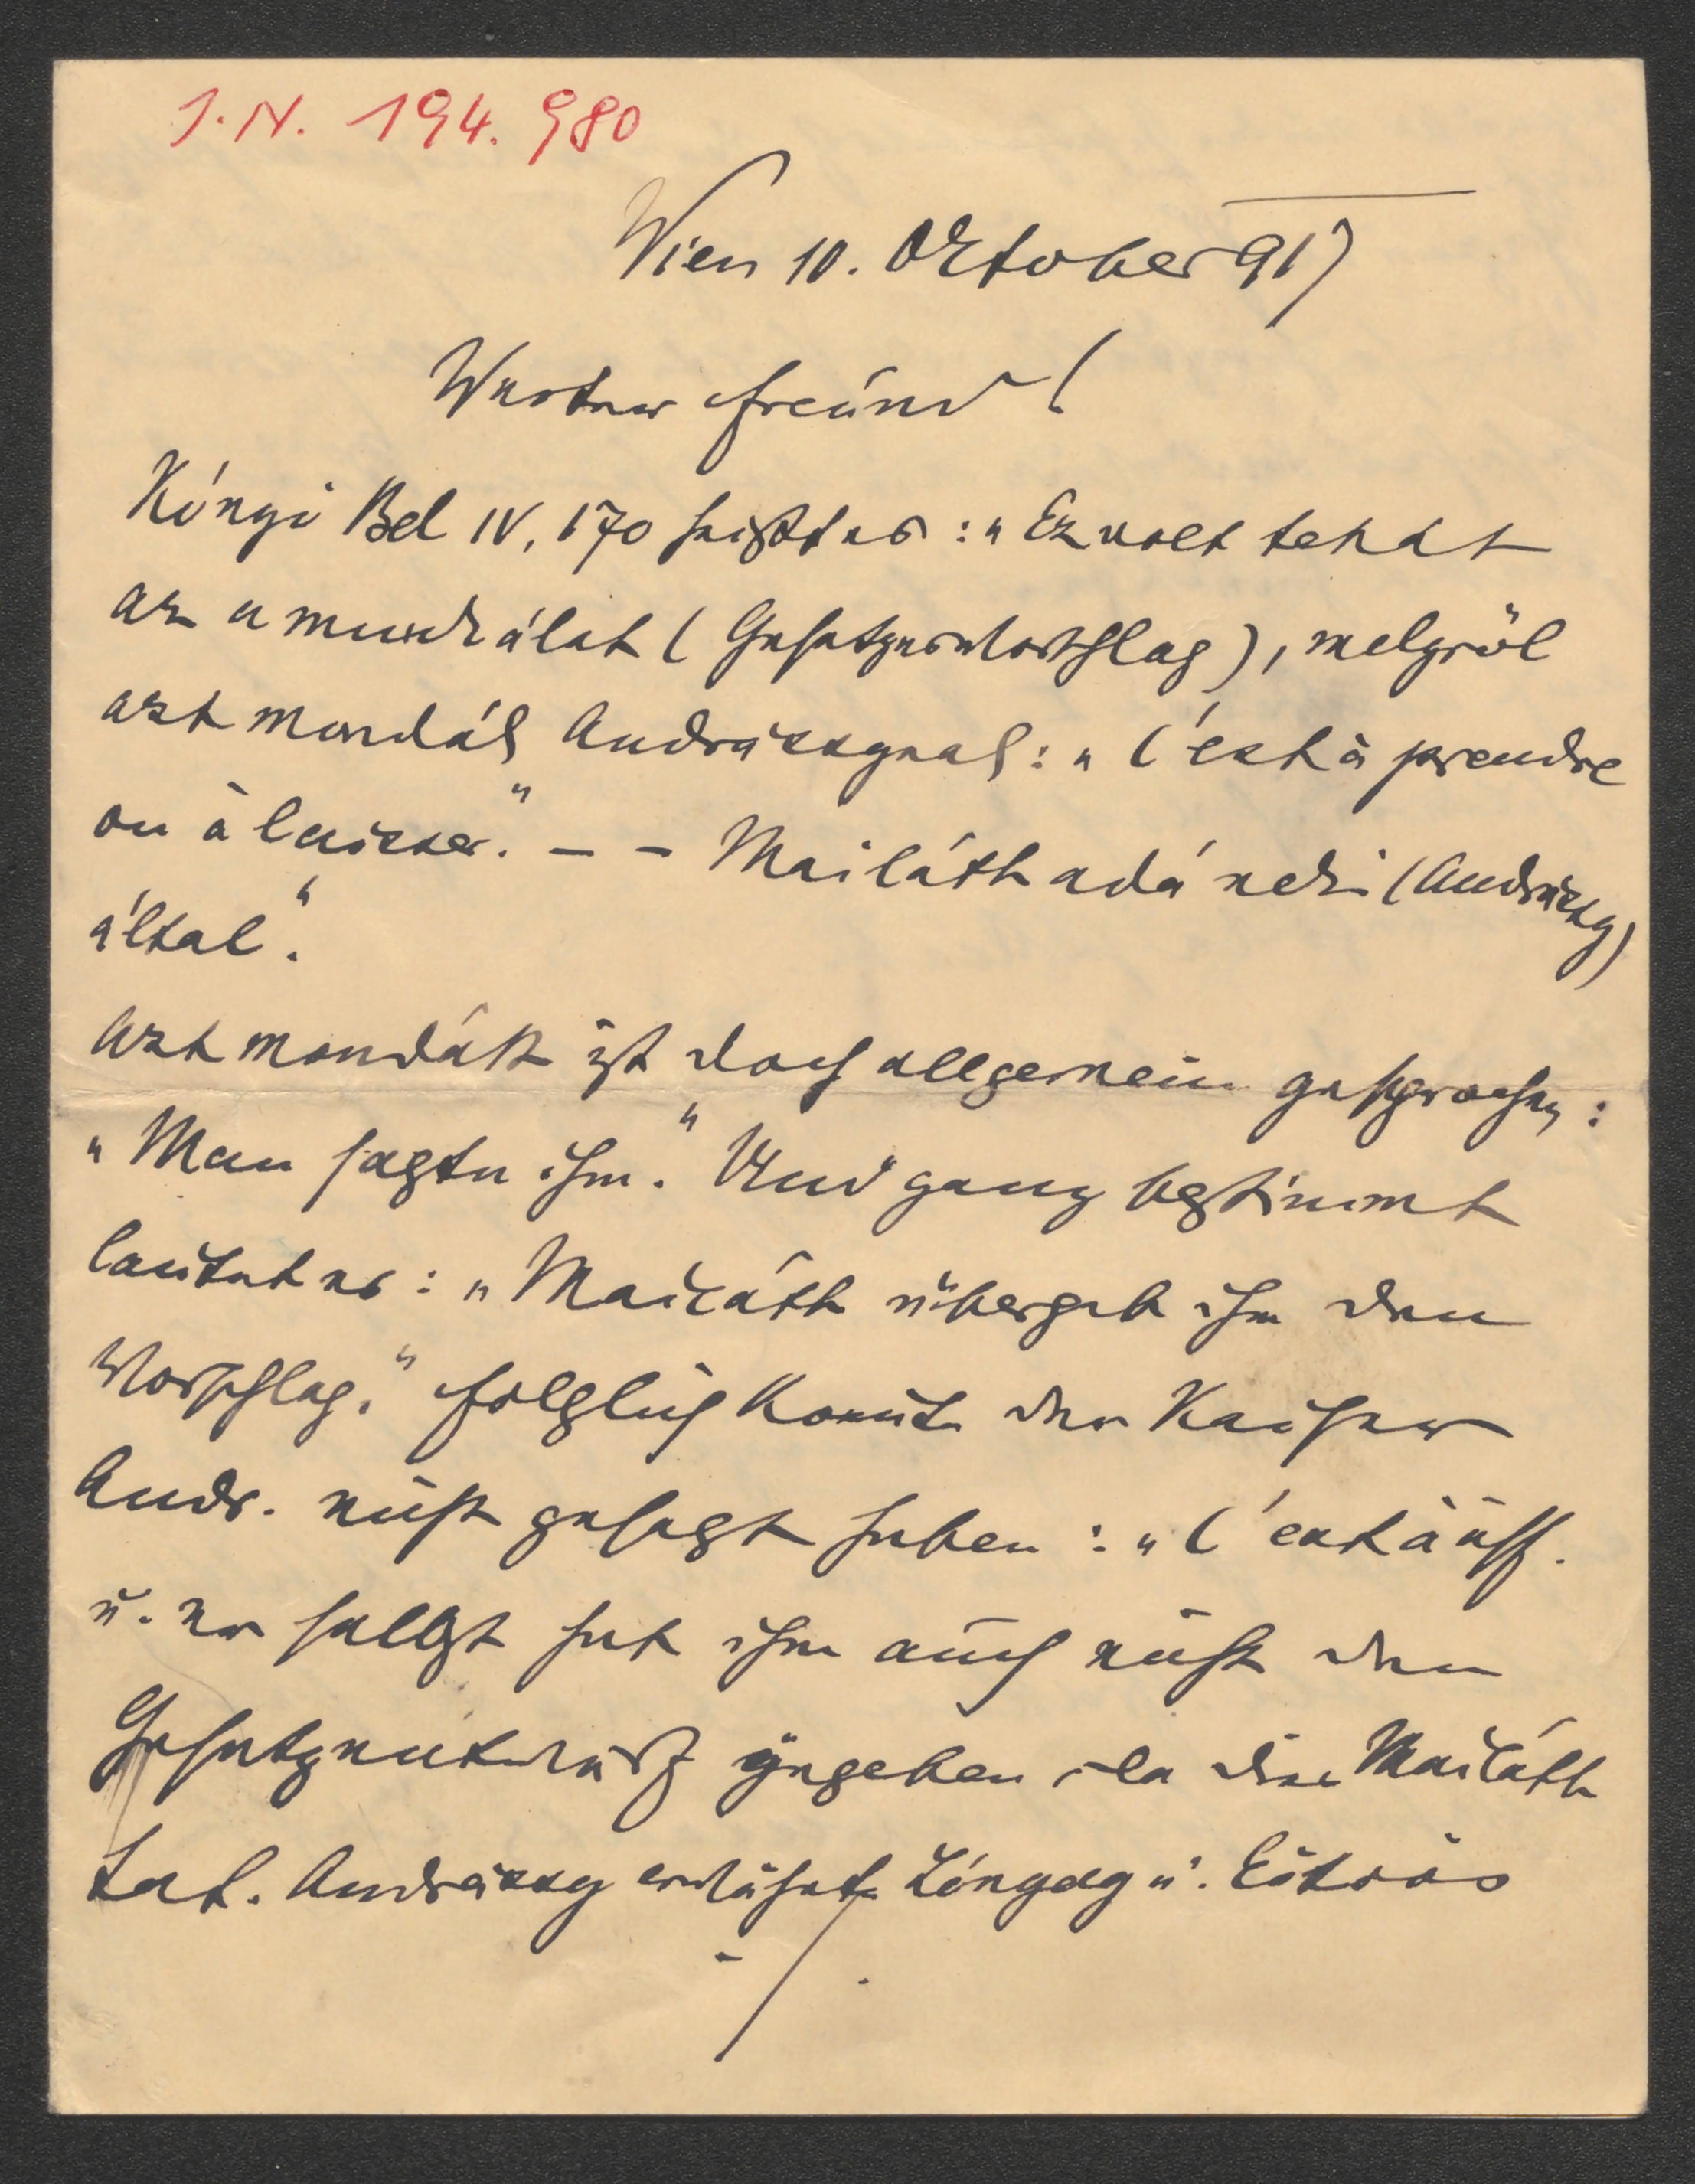 J. N. 194.980
Wien 10. Oktober 917
Werter Freund!
Kónyi Bel IV, 170 heißt es: „Ez volt tehát
az a munkálat (Gesetzesvorschlag), melyröl
azt mondák Andrássynak: „C'est à prendre
ou à laisser." – – Mailáth adá neki (Andrássy)
által".
Azt mondák ist doch allgemein gesprochen:
„Man sagte ihm." Und ganz bestimmt
lautet es: „Mailáth übergab ihm den
Vorschlag." Folglich konnte der Kaiser
Andr. nicht gesagt haben: „C'est à usf.
u. er selbst hat ihm auch nicht den
Gesetzentwurf gegeben da dies Mailáth
tat. Andrássy erwähnte Lónyay u. Eötvös
./.